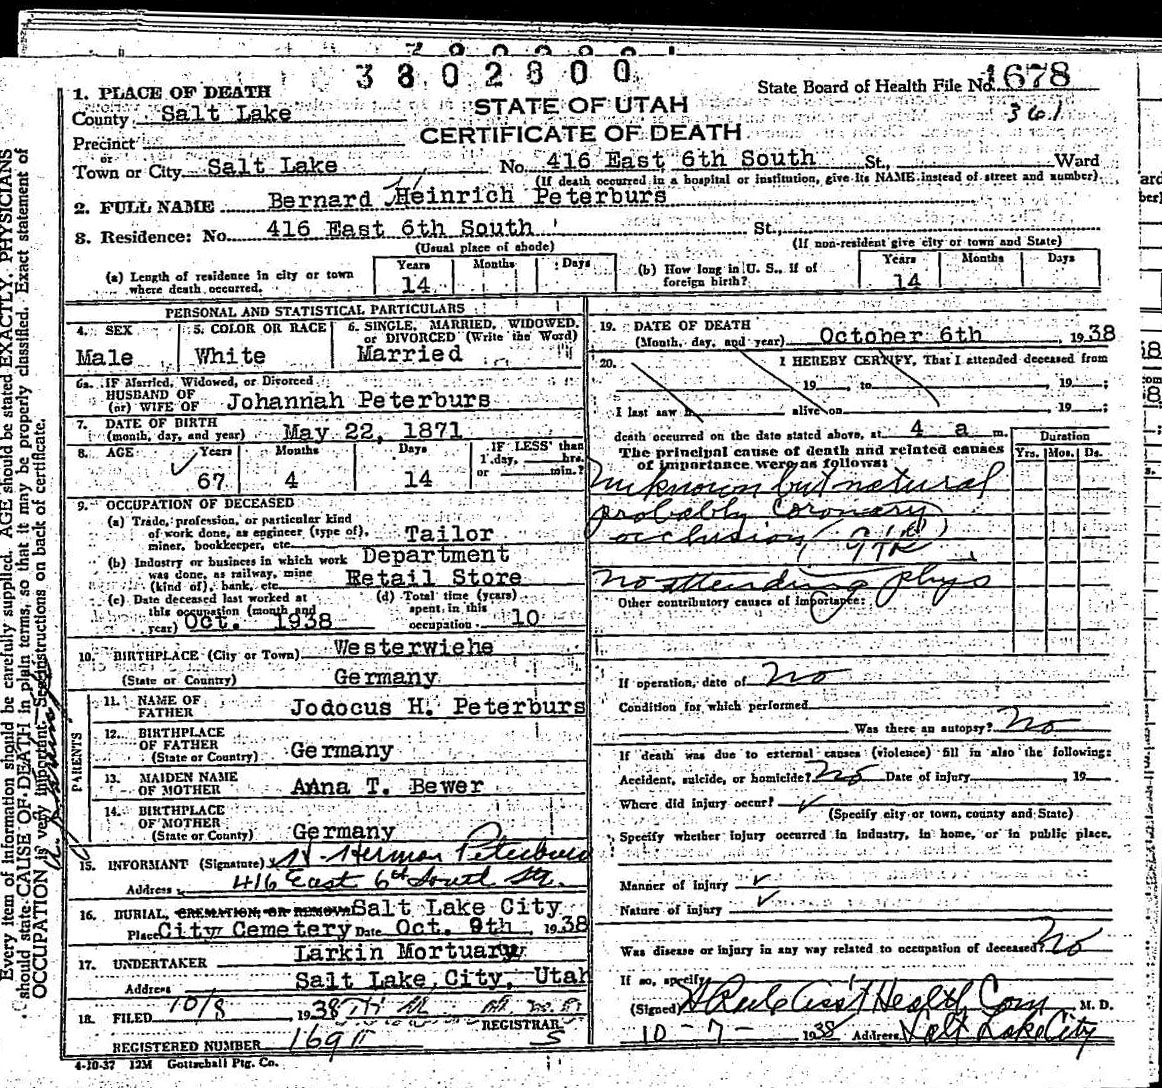 3802800
State Board of Health File No. 1678
361
STATE OF UTAH
CERTIFICATE OF DEATH
1. PLACE OF DEATH
County Salt Lake
Precinct
or
Town or City Salt Lake No. 416 East 6th South St., Ward
(If death occurred in a hospital or institution, give its NAME instead of street and number)
2. FULL NAME Bernard Heinrich Peterburs
3. Residence: No. 416 East 6th South St.,
(Usual place of abode) (If non-resident give city or town and State)
(a) Length of residence in city or town where death occurred. Years 14 Months Days
(b) How long in U. S., if of foreign birth? Years 14 Months Days
PERSONAL AND STATISTICAL PARTICULARS
4. SEX Male
5. COLOR OR RACE White
6. SINGLE, MARRIED, WIDOWED, or DIVORCED (Write the Word) Married
6a. IF Married, Widowed, or Divorced
HUSBAND OF
(or) WIFE OF Johannah Peterburs
7. DATE OF BIRTH
(month, day, and year) May 22, 1871
8. AGE Years 67 Months 4 Days 14 IF LESS than 1 day, hrs. or min.?
9. OCCUPATION OF DECEASED
(a) Trade, profession, or particular kind of work done, as engineer (type of), miner, bookkeeper, etc. Tailor
(b) Industry or business in which work was done, as railway, mine (kind of), bank, etc. Department Retail Store
(c) Date deceased last worked at this occupation (month and year) Oct. 1938
(d) Total time (years) spent in this occupation 10
10. BIRTHPLACE (City or Town) Westerwiehe
(State or Country) Germany
PARENTS
11. NAME OF FATHER Jodocus H. Peterburs
12. BIRTHPLACE OF FATHER
(State or Country) Germany
13. MAIDEN NAME OF MOTHER Anna T. Bewer
14. BIRTHPLACE OF MOTHER
(State or County) Germany
15. INFORMANT (Signature) H. Herman Peterburs
Address 416 East 6th South Str.
16. BURIAL, CREMATION, OR REMOVAL Salt Lake City
Place City Cemetery Date Oct. 9th 1938
17. UNDERTAKER Larkin Mortuary
Address Salt Lake City, Utah
18. FILED 10/8 1938
REGISTRAR
REGISTERED NUMBER 1691
4-10-37 12M Gottschall Ptg. Co.
19. DATE OF DEATH
(Month, day, and year) October 6th 1938
20. I HEREBY CERTIFY, That I attended deceased from
19 , to , 19 ;
I last saw h alive on 19 ;
death occurred on the date stated above, at 4 a m.
The principal cause of death and related causes of importance were as follows:
Duration
Yrs. Mos. Ds.
Unknown but natural
probably coronary
occlusion
No attending phys
Other contributory causes of importance:
If operation, date of No
Condition for which performed
Was there an autopsy? No
If death was due to external causes (violence) fill in also the following:
Accident, suicide, or homicide? No Date of injury 19
Where did injury occur?
(Specify city or town, county and State)
Specify whether injury occurred in industry, in home, or in public place.
Manner of injury
Nature of injury
Was disease or injury in any way related to occupation of deceased? No
If so, specify
(Signed) Ass't Health Com M. D.
10-7- 1938 Address Salt Lake City
Every item of information should be carefully supplied. AGE should be stated EXACTLY. PHYSICIANS
should state CAUSE OF DEATH in plain terms, so that it may be properly classified. Exact statement of
OCCUPATION is very important. See instructions on back of certificate.